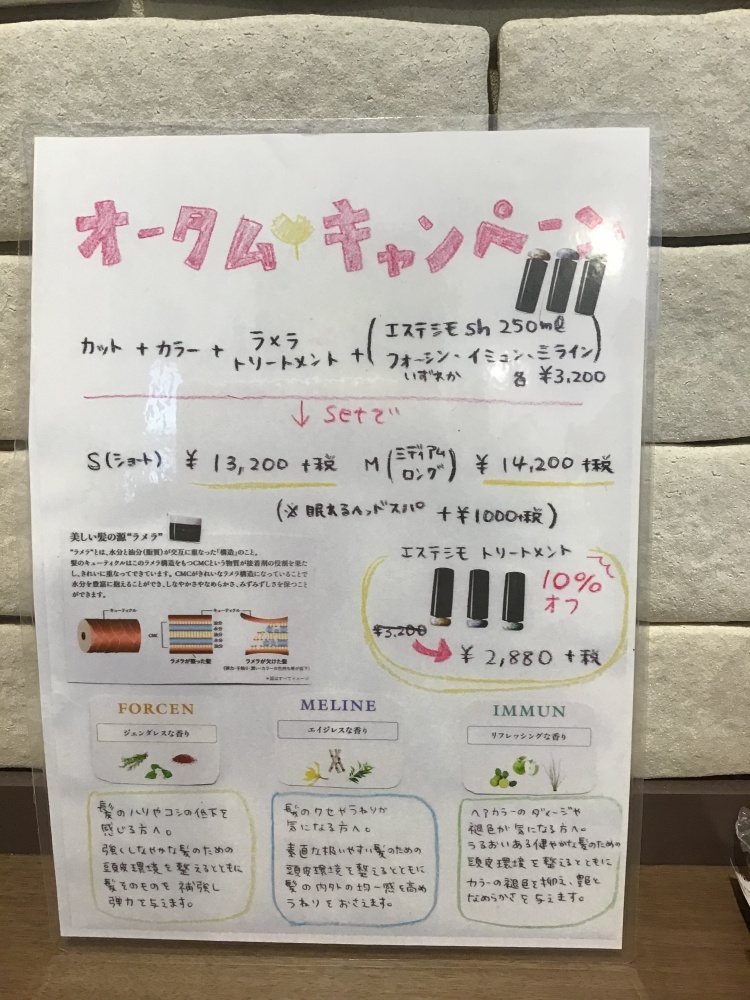 オータム キャンペーン
カット + カラー + ラメラ トリートメント + (エステシモ sh 250ml
フォーシン、イミュン、ミライン)
いずれか 各 ¥3,200
↓ setで
S(ショート) ¥ 13,200 +税 M(ミディアム ロング) ¥ 14,200 +税
(※ 眠れるヘッドスパ +¥1000+税)
美しい髪の源"ラメラ"
"ラメラ"とは、水分と油分(脂質)が交互に重なった「構造」のこと。
髪のキューティクルはこのラメラ構造をもつCMCという物質が接着剤の役割を果た
し、きれいに重なってできています。CMCがきれいなラメラ構造になっていることで
水分を豊富に抱えることができ、しなやかさやなめらかさ、みずみずしさを保つこと
ができます。
キューティクル
キューティクル
CMC
ラメラが整った髪
ラメラが欠けた髪
エステシモ トリートメント
10%
オフ
¥3,200
¥ 2,880 +税
FORCEN
ジェンダレスな香り
髪のハリやコシの低下を
感じる方へ。
強くしなやかな髪のための
頭皮環境を整えるとともに
髪そのものを補強し
弾力を与えます。
MELINE
エイジレスな香り
髪のクセやうねりが
気になる方へ。
素直な扱いやすい髪のための
頭皮環境を整えるとともに
髪の内外の均一感を高め
うねりをおさえます。
IMMUN
リフレッシングな香り
ヘアカラーのダメージや
褪色が気になる方へ。
うるおいある健やかな髪のための
頭皮環境を整えるとともに
カラーの褪色を抑え、艶と
なめらかさを与えます。